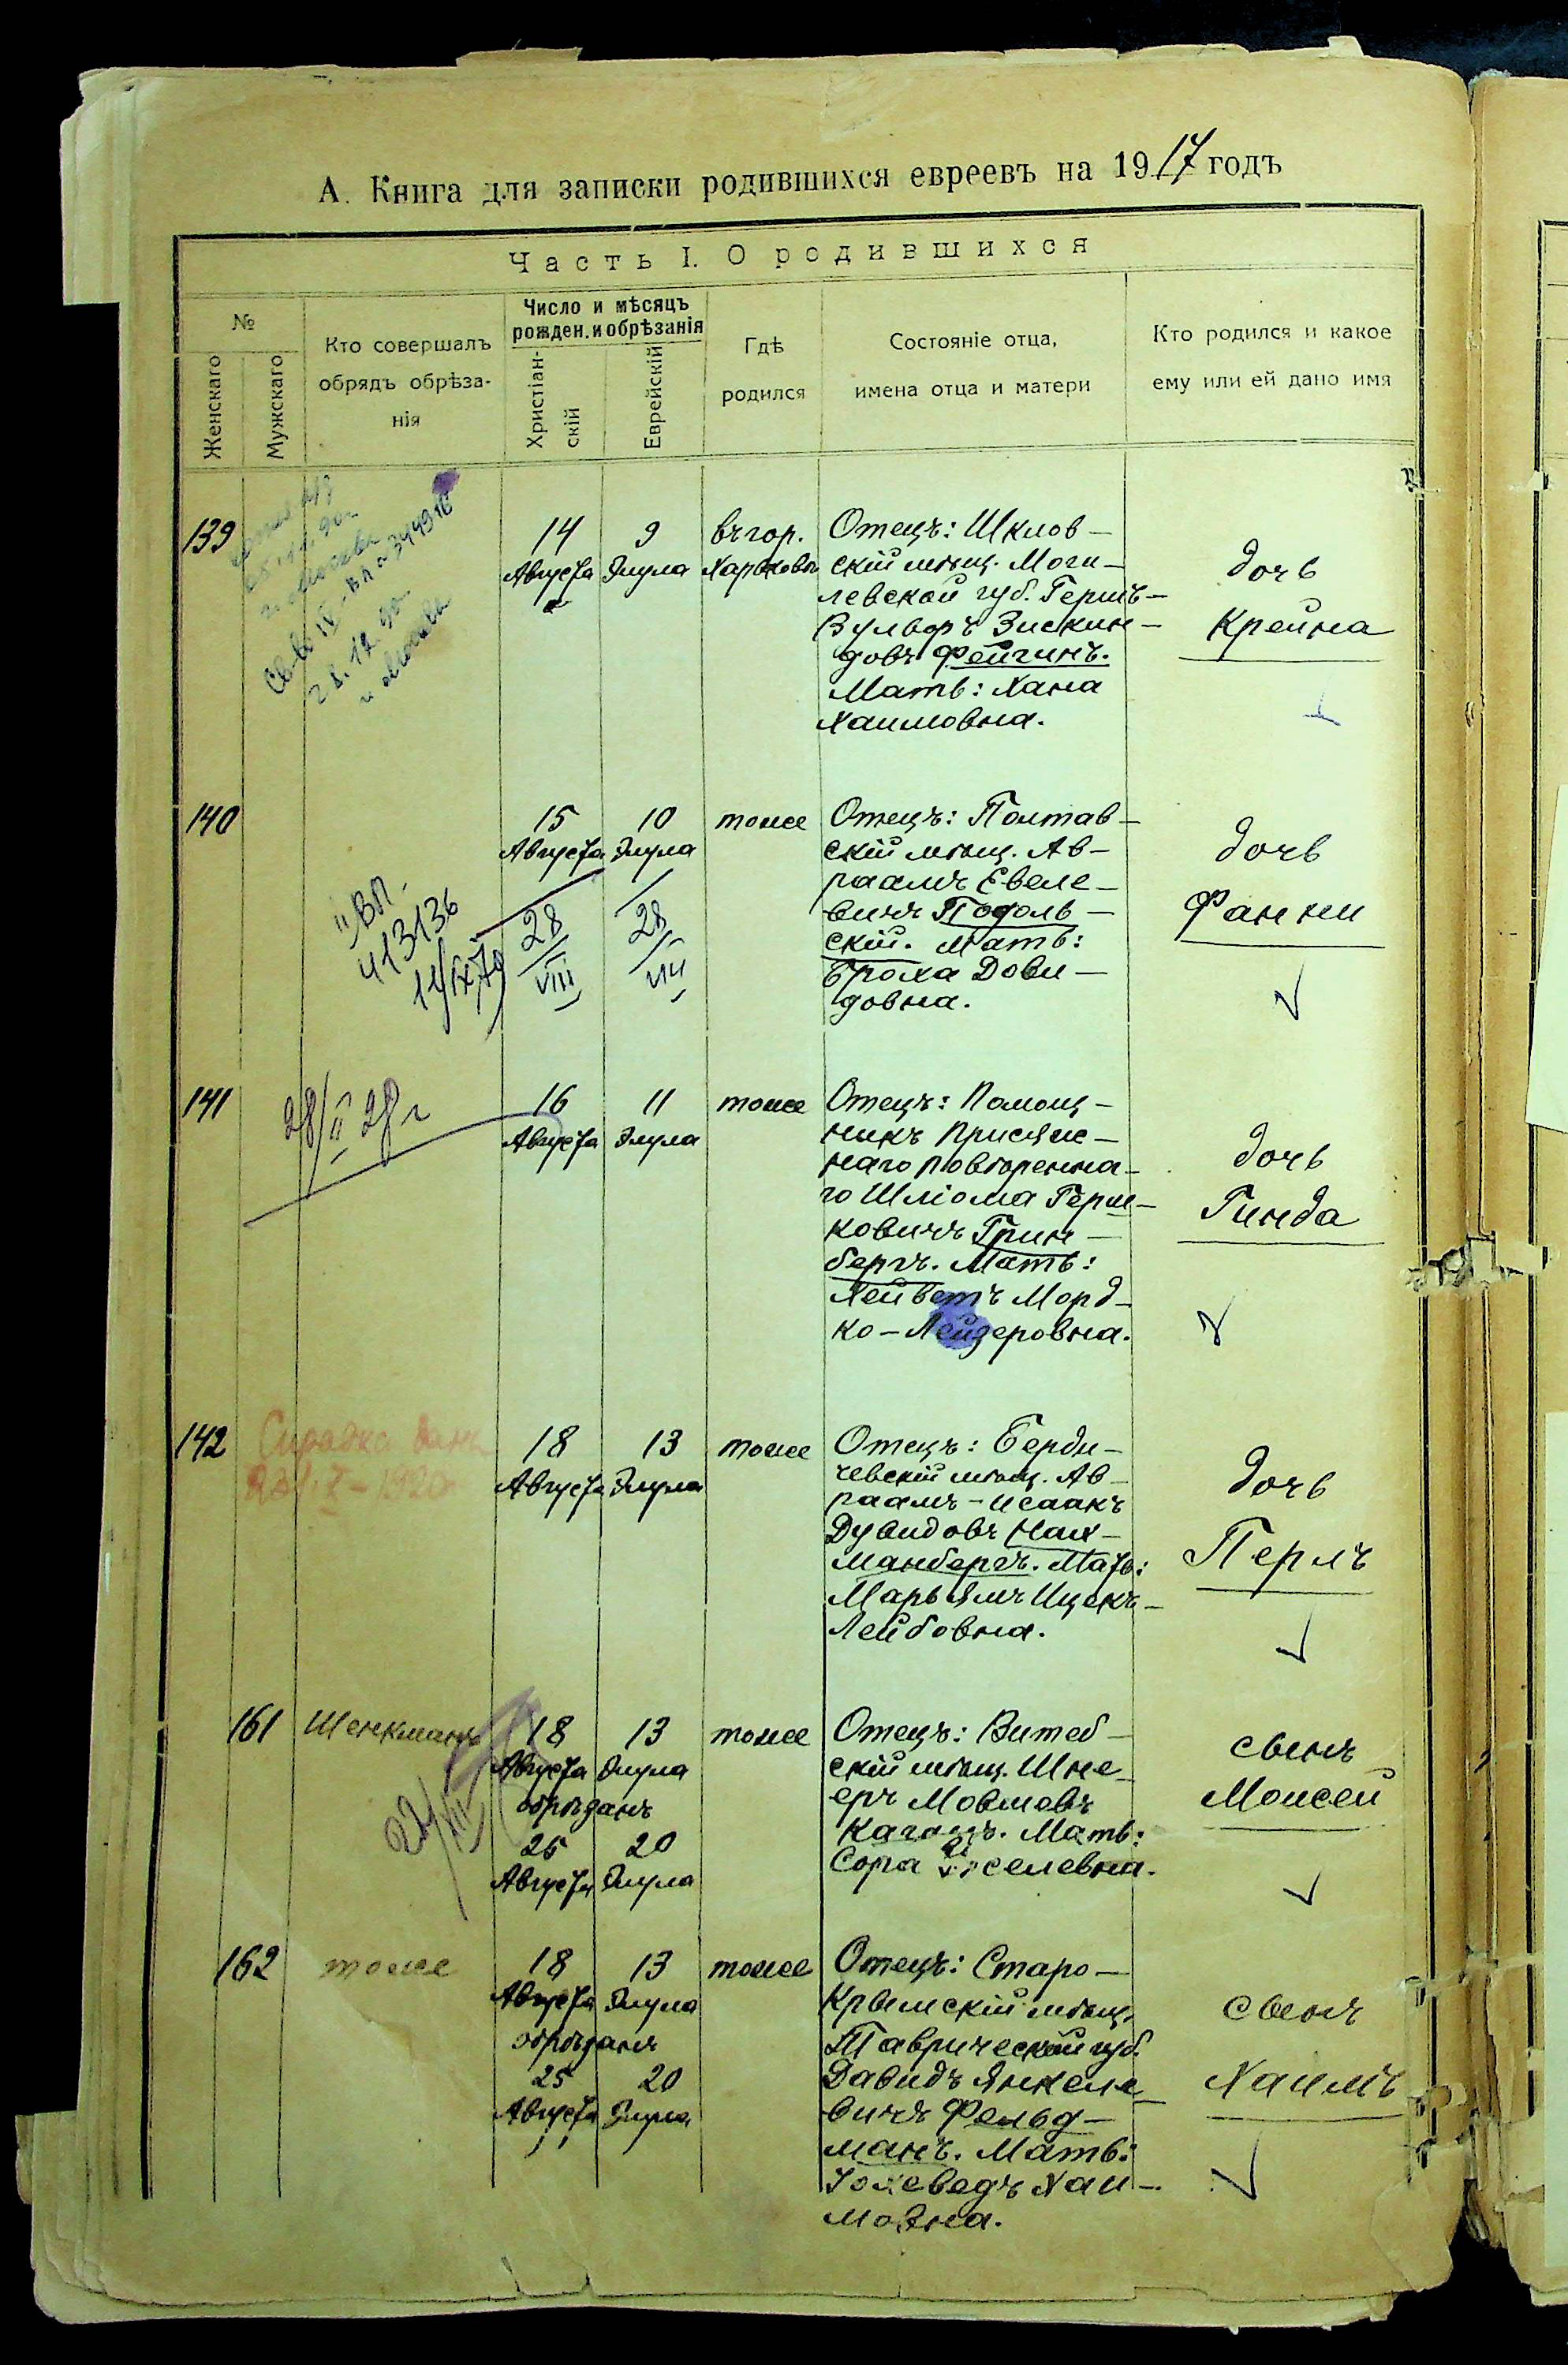 А. Книга для записки родившихся евреевъ на 1917 годъ
Часть I. О родившихся
№
Женскаго
Мужскаго
Кто совершалъ
обрядъ обрѣза-
нія
Число и мѣсяцъ
рожден. и обрѣзанія
Христіан-
скій
Еврейскій
Гдѣ
родился
Состояніе отца,
имена отца и матери
Кто родился и какое
ему или ей дано имя
139
28.12.90
14
Августа
9
Элула
въ гор.
Харьковѣ
Отецъ: Шклов-
скій мѣщ. Моги-
левской губ. Гершъ-
Вульфъ Зискин-
довъ Фейгинъ.
Мать: Хана
Хаимовна.
дочь
Крейна
140
"ВП
413136
15
Августа
28
VIII
10
Элула
28
VIII
тоже
Отецъ: Полтав-
скій мѣщ. Ав-
раамъ Евеле-
вичъ Подоль-
скій. Мать:
Броха Дови-
довна.
дочь
Фанни
141
28/II 28 г
16
Августа
11
Элула
тоже
Отецъ: Помощ-
никъ Присяж-
наго повѣренна-
го Шліома Герш-
ковичъ Грин-
бергъ. Мать:
Морд-
ко-Лейзеровна.
дочь
Гинда
142
Справка дана
18
Августа
13
Элула
тоже
Отецъ: Берди-
чевскій мѣщ. Ав-
раамъ-Исаакъ
Дувидовъ Нах-
манбергъ. Мать:
Марьямъ Ицекъ-
Лейбовна.
дочь
Перлъ
161
Шенкманъ
18
Августа
13
Элула
обрѣзанъ
25
Августа
20
Элула
тоже
Отецъ: Витеб-
скій мѣщ. Шне-
еръ Мовшевъ
Каганъ. Мать:
Сора
сынъ
Моисей
162
тоже
18
Августа
13
Элула
обрѣзанъ
25
Августа
20
Элула
тоже
Отецъ: Старо-
Крымскій мѣщ.
Таврической губ.
Давидъ Янкеле-
вичъ Фельд-
манъ. Мать:
Хаи-
мовна.
сынъ
Хаимъ